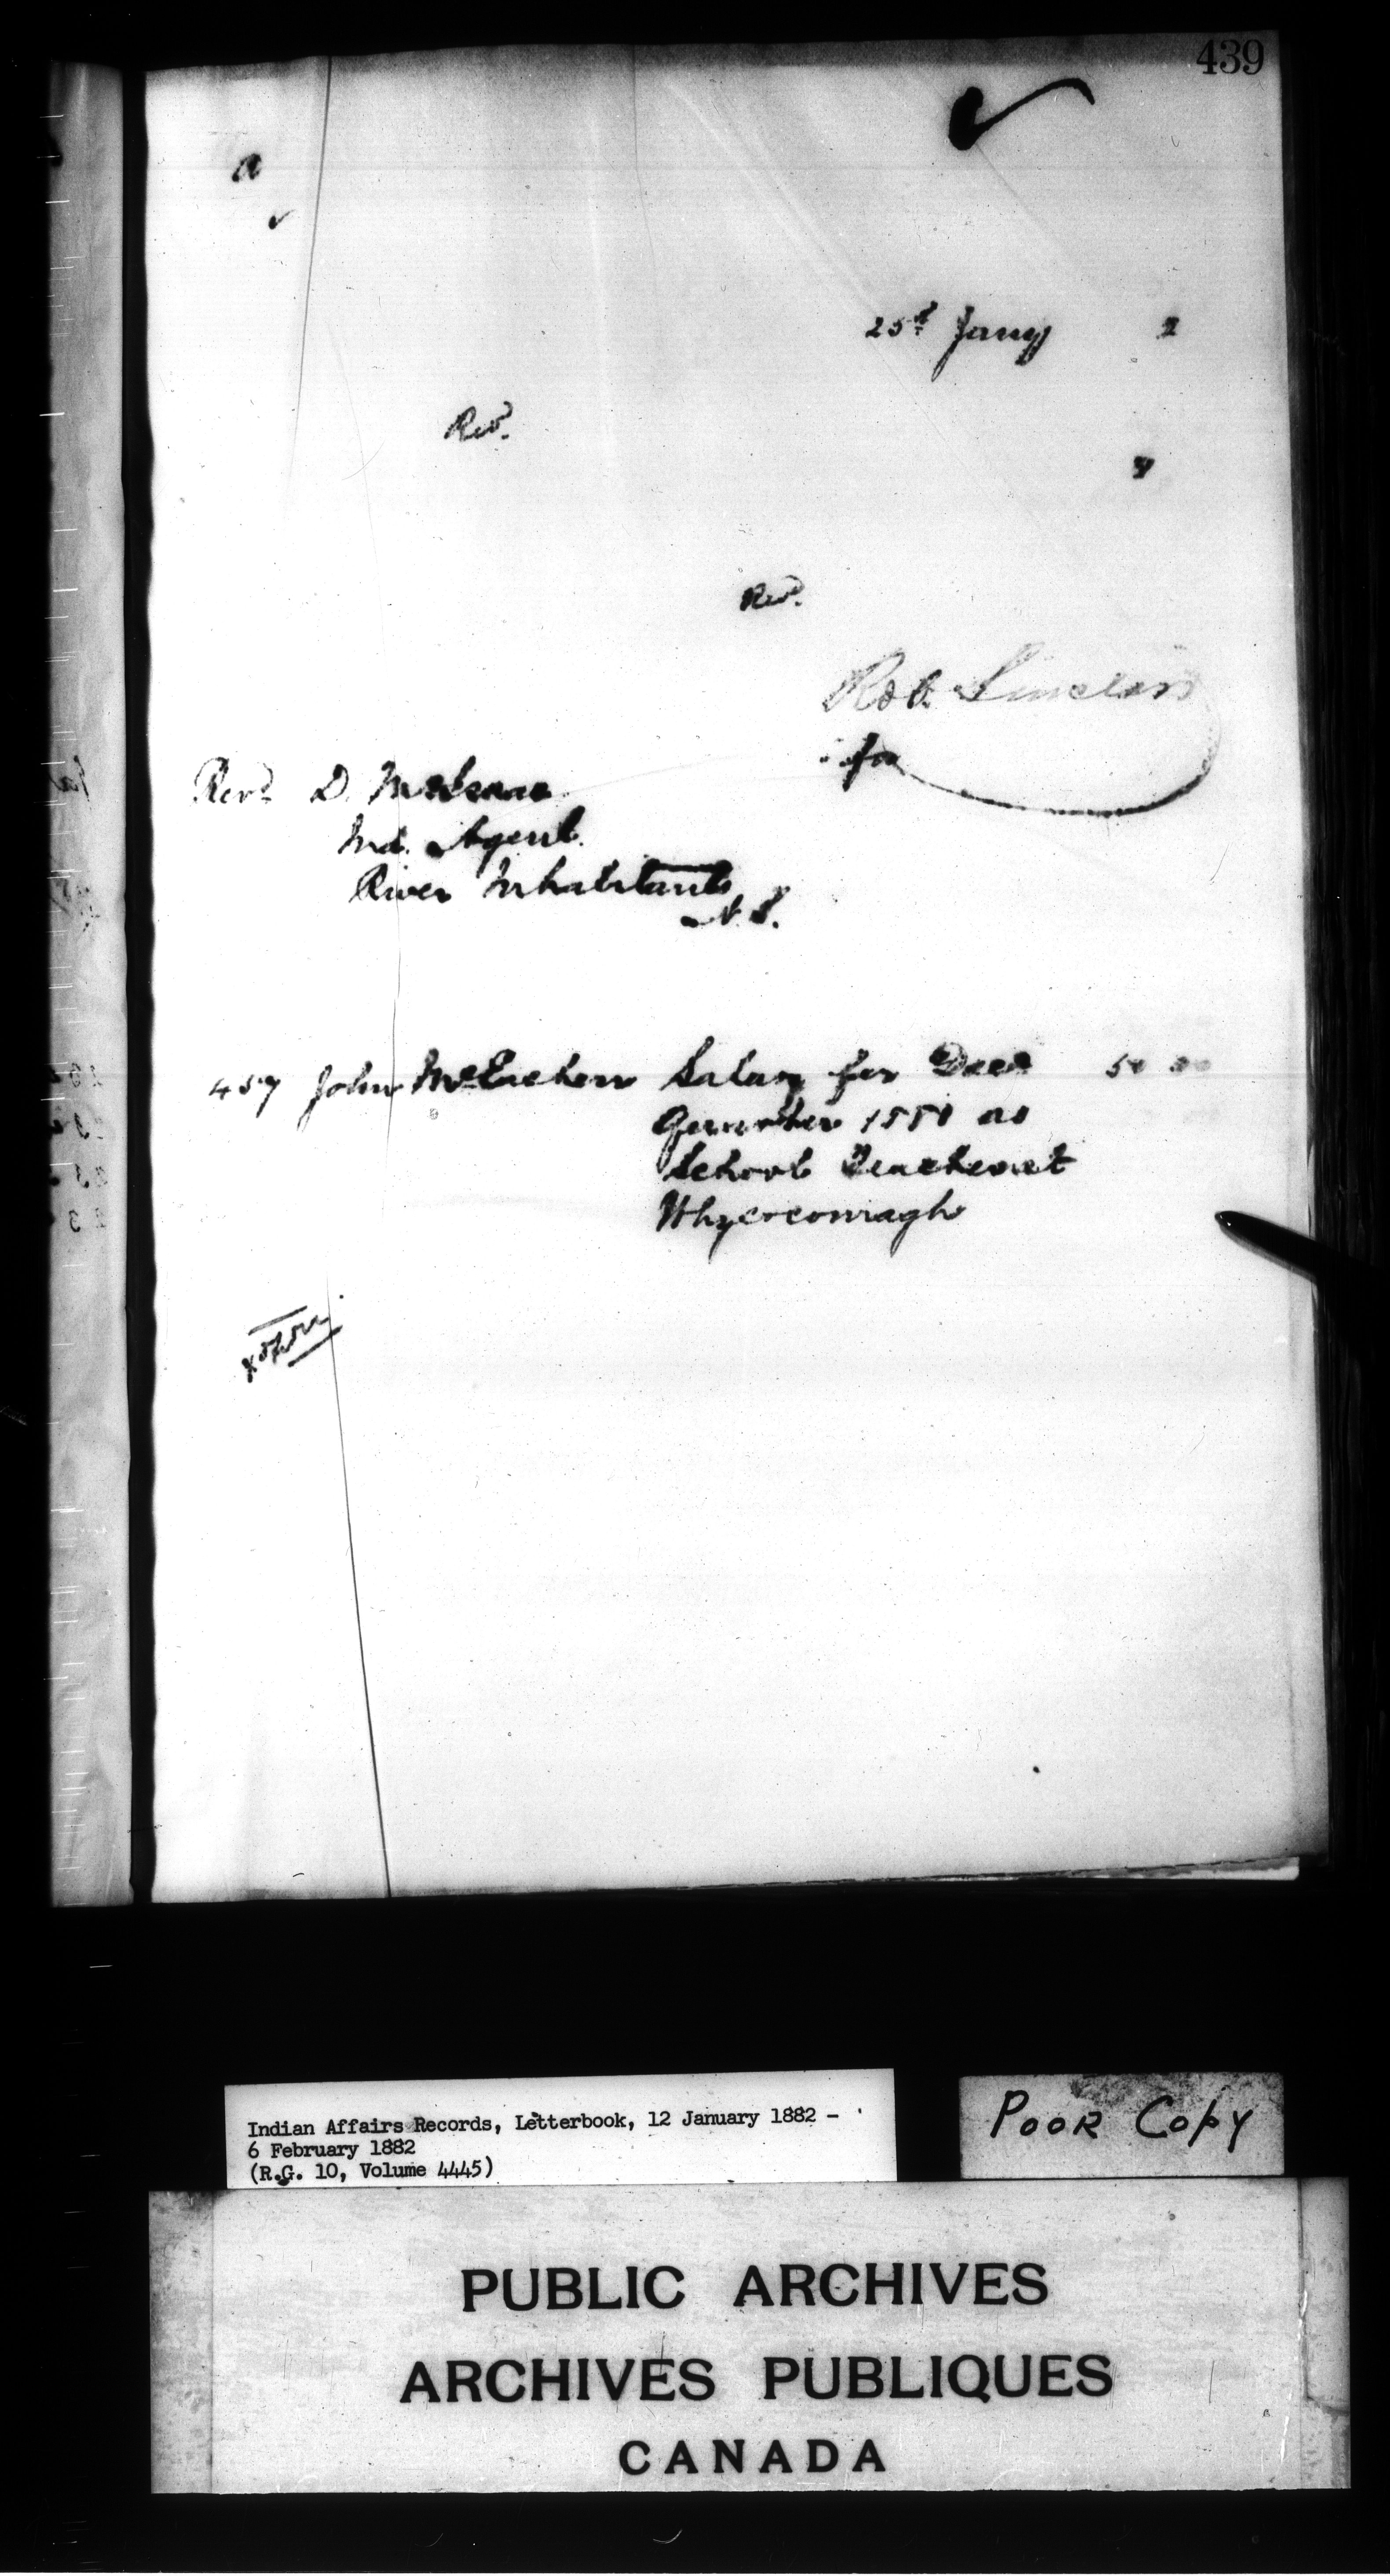 439
a
25th Jany 2
Rev.
Rev.
Rob. Sinclair
for
Revd D. McIsaac
Ind. Agent.
River Inhabitants
N.S.
457 John McEachern Salary for Decr 50 00
Quarter 1881 as
School Teacher at
Whycocomagh
Indian Affairs Records, Letterbook, 12 January 1882 -
6 February 1882
(R.G. 10, Volume 4445)
POOR COPY
PUBLIC ARCHIVES
ARCHIVES PUBLIQUES
CANADA